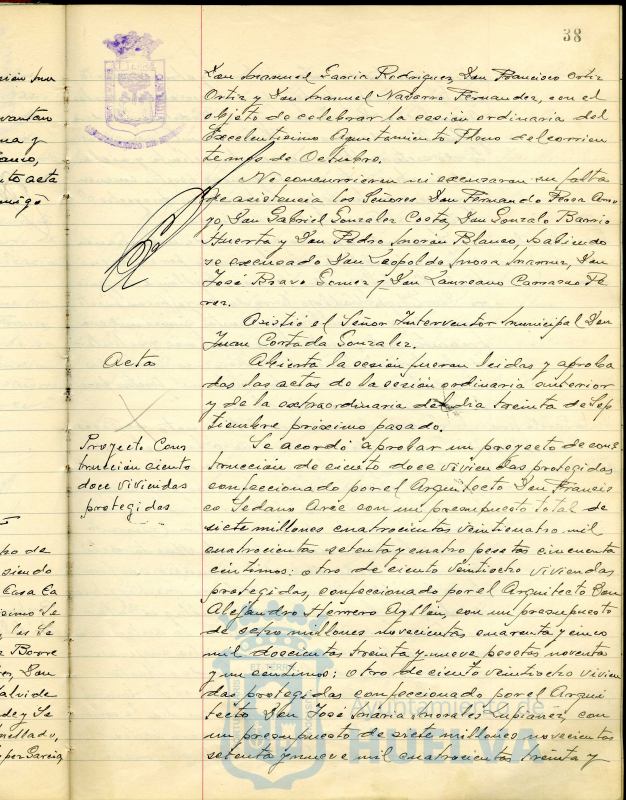 38
Don Manuel Garcia Rodriguez, Don Francisco Ortiz
Ortiz y Don Manuel Navarro Fernandez, con el
objeto de celebrar la sesión ordinaria del
Excelentisimo Ayuntamiento Pleno del corrien
te mes de Octubre.
No concurrieron ni excusaron su falta
de asistencia los Señores Don Fernando Perea Arro
yo, Don Gabriel Gonzalez Costa, Don Gonzalo Barrio
Huerta y Don Pedro Moran Blanco, habiendo
se excusado Don Leopoldo Mora Don
José Bravo Gomez y Don Laureano Carrasco Pe
rez.
Asistió el Señor Interventor Municipal Don
Juan Cortada Gonzalez.
Acta
Abierta la sesión fueron leidas y aproba
das las actas de la sesión ordinaria anterior
y de la extraordinaria del dia treinta de Sep
tiembre próximo pasado.
Proyecto Cons
trucción ciento
doce viviendas
protegidas
Se acordó aprobar un proyecto de cons
trucción de ciento doce viviendas protegidas
confeccionado por el Arquitecto Don Francis
co Sedano Arce con un presupuesto total de
siete millones cuatrocientas veinticuatro mil
cuatrocientas setenta y cuatro pesetas cincuenta
centimos: otro de ciento veintiocho viviendas
protegidas, confeccionado por el Arquitecto Don
Alejandro Herrero Ayllón, con un presupuesto
de millones novecientas cuarenta y cinco
mil doscientas treinta y nueve pesetas noventa
y un centimos; otro de ciento veintiocho vivien
das protegidas confeccionado por el Arqui
tecto Don José Maria Morales Lupiañez, con
un presupuesto de siete millones novecientas
setenta y nueve mil cuatrocientas treinta y
Ayuntamiento de
HUELVA